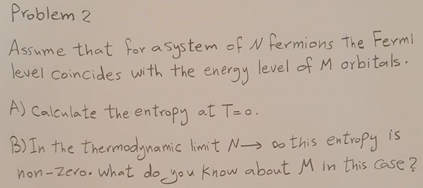 Problem 2
Assume that for a system of N fermions the Fermi
level coincides with the energy level of M orbitals.
A) Calculate the entropy at T=0.
B) In the thermodynamic limit N→ ∞ this entropy is
non-zero. what do you know about M in this case?